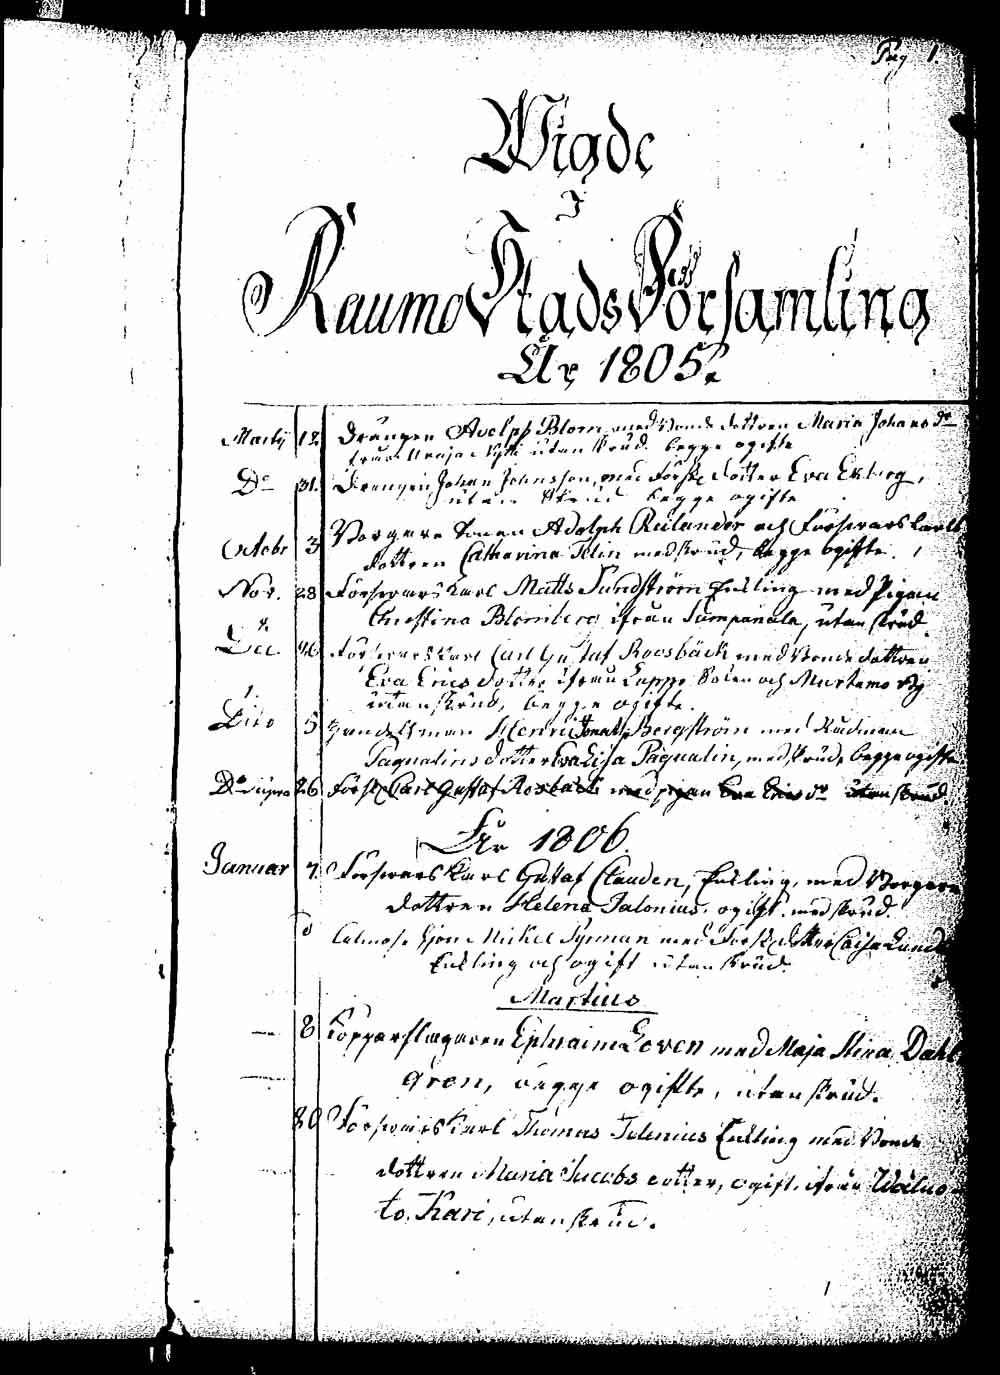 Pag 1.
Wigde
I
Raumo Stads Församling
År 1805.
Martij 12. Drängen Adolph Blom med Bonde dottren Maria Johans dr
ifrån utan skrud. begge ogifte
Do 31. Drengen Johan Johnsson med Försk. dotter Eva Ekberg,
utan skrud begge ogifte
October 3 Borgare Sonen Adolph Relander och Försvars karls
dottren Catharina Idlin med skrud, begge ogifte.
Nov. 28 Försvars Karl Matts Sundström Enkling med Pigan
Christina Blomberg ifrån Sampanala, utan skrud.
Dec 26 Försvars karl Carl Gustaf Roosbäck med Bonde dottren
Eva Erics dotter ifrån Lappo Socken och Murtamo By
utan skrud, begge ogifte.
Dito 5 Handelsman Henric Jonath. Bergström med Rådman
Paqualins dotter Eva Lisa Paqualin, med skrud, begge ogifte
Do 26 Försk. Carl Gustaf Rosback med pigan Eva Erics dr utan skrud.
År 1806.
Januar 7 Försvars Karl Gustaf Clauden, Enkling, med Borgare
dottren Helena Salonius, ogift. med skrud.
Mickel Synman med Försk. dotter Caisa
Enkling och ogift utan skrud.
Martius
8 Kopparslagaren Ephraim Loven med Maja Stina Dahl
gren, begge ogifte, utan skrud.
20 Försvars Karl Thomas Idenius Enkling med Bonde
dottren Maria Jacobs dotter, ogift, ifrån
to Kari, utan skrud.
1